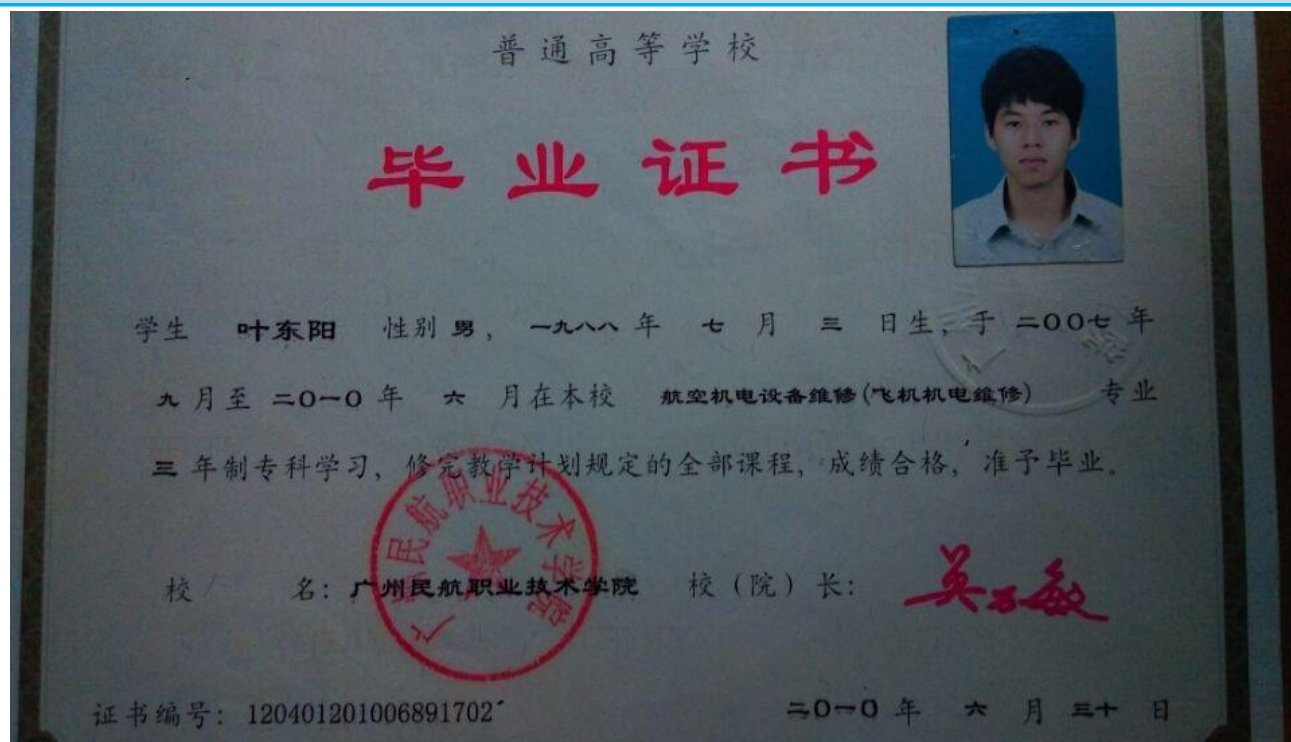 普通高等学校
毕业证书
学生 叶东阳 性别 男, 一九八八 年 七 月 三 日生, 于 二〇〇七 年
九 月至 二〇一〇 年 六 月在本校 航空机电设备维修(飞机机电维修) 专业
三 年制专科学习, 修完教学计划规定的全部课程, 成绩合格, 准予毕业。
广州民航职业技术学院
校 名: 广州民航职业技术学院 校(院)长:
证书编号: 120401201006891702
二〇一〇 年 六 月 三十 日